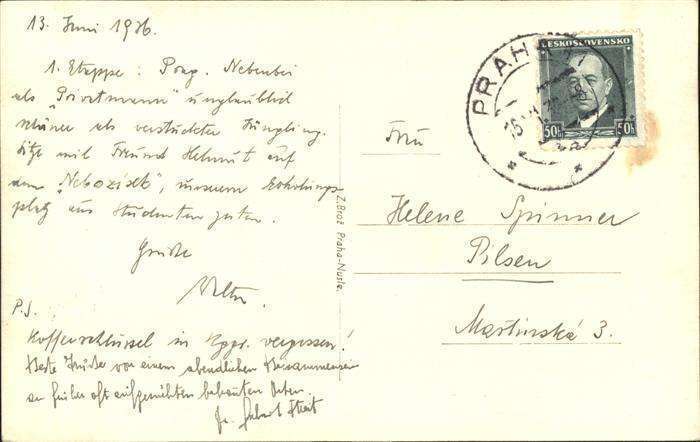 13. Juni 1936.
1. Etappe: Prag. Nebenbei
als "Privatmann" unglaublich
schöner als verstuckter Jüngling.
Sitze mit Freund Helmut auf
dem "Nebozízek", unserem Erholungs
platz aus Studentenzeiten.
Grüße
P.S.
Kofferschlüssel in vergessen!
Beste Grüße von einem abendlichen Beisammensein
an früher oft aufgesuchten bekannten Orten.
Z. Brož Praha-Nusle.
PRAHA
ČESKOSLOVENSKO
50h 50h
Frau
Helene Spinner
Pilsen
Martinská 3.